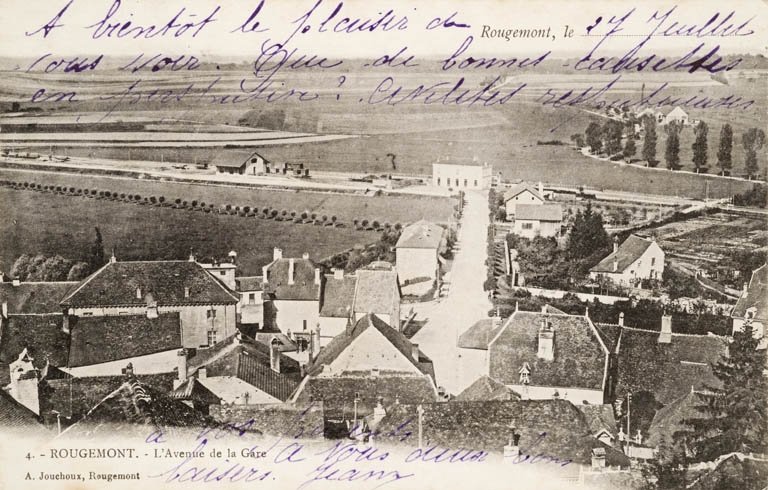 A bientôt le plaisir de
Rougemont, le 27 Juillet
vous voir. Que de bonnes causettes
en perspective ? Amitiés respectueuses
à vos
4. - ROUGEMONT. - L'Avenue de la Gare
A vous deux bons
A. Jouchoux, Rougemont
baisers. Jeanx